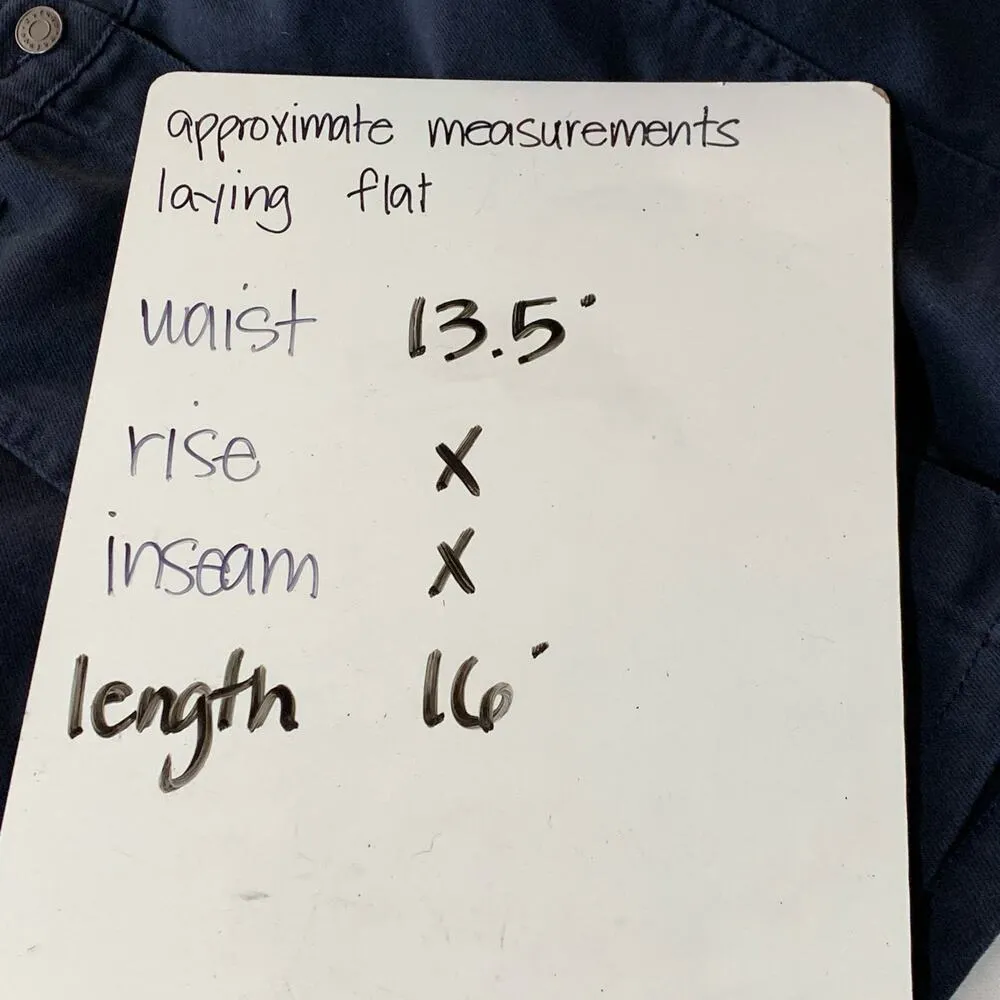 approximate measurements
laying flat
waist 13.5"
rise X
inseam X
length 16"